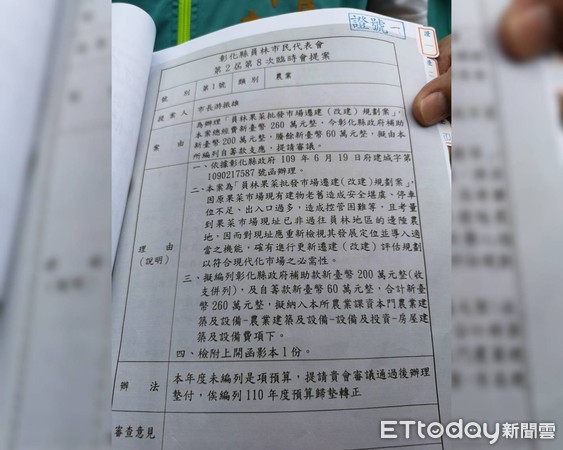 證號一
彰化縣員林市民代表會
第2屆第8次臨時會提案
號 別 第1號 類別 農業
提案人 市長游振雄
案 由
為辦理「員林果菜批發市場遷建(改建)規劃案」,
本案總經費新臺幣260萬元整,今彰化縣政府補助
新臺幣200萬元整,賸餘新臺幣60萬元整,擬由本
所編列自籌款支應,提請審議。
理 由
(說明)
一、依據彰化縣政府109年6月19日府建城字第
1090217587號函辦理。
二、本案為「員林果菜批發市場遷建(改建)規劃案」,
因原果菜市場現有建物老舊造成安全堪虞、停車
位不足、出入口過多,造成控管困難等,且考量
到果菜市場現址已非過往員林地區的邊陲農
地,因而對現址應重新檢視其發展定位並導入適
當之機能,確有進行更新遷建(改建)評估規劃
以符合現代化市場之必需性。
三、擬編列彰化縣政府補助款新臺幣200萬元整(收
支併列),及自籌款新臺幣60萬元整,合計新臺
幣260萬元整,擬納入本所農業課資本門農業建
築及設備-農業建築及設備-設備及投資-房屋建
築及設備費項下。
四、檢附上開函影本1份。
辦 法
本年度未編列是項預算,提請貴會審議通過後辦理
墊付,俟編列110年度預算歸墊轉正
審查意見
ETtoday新聞雲